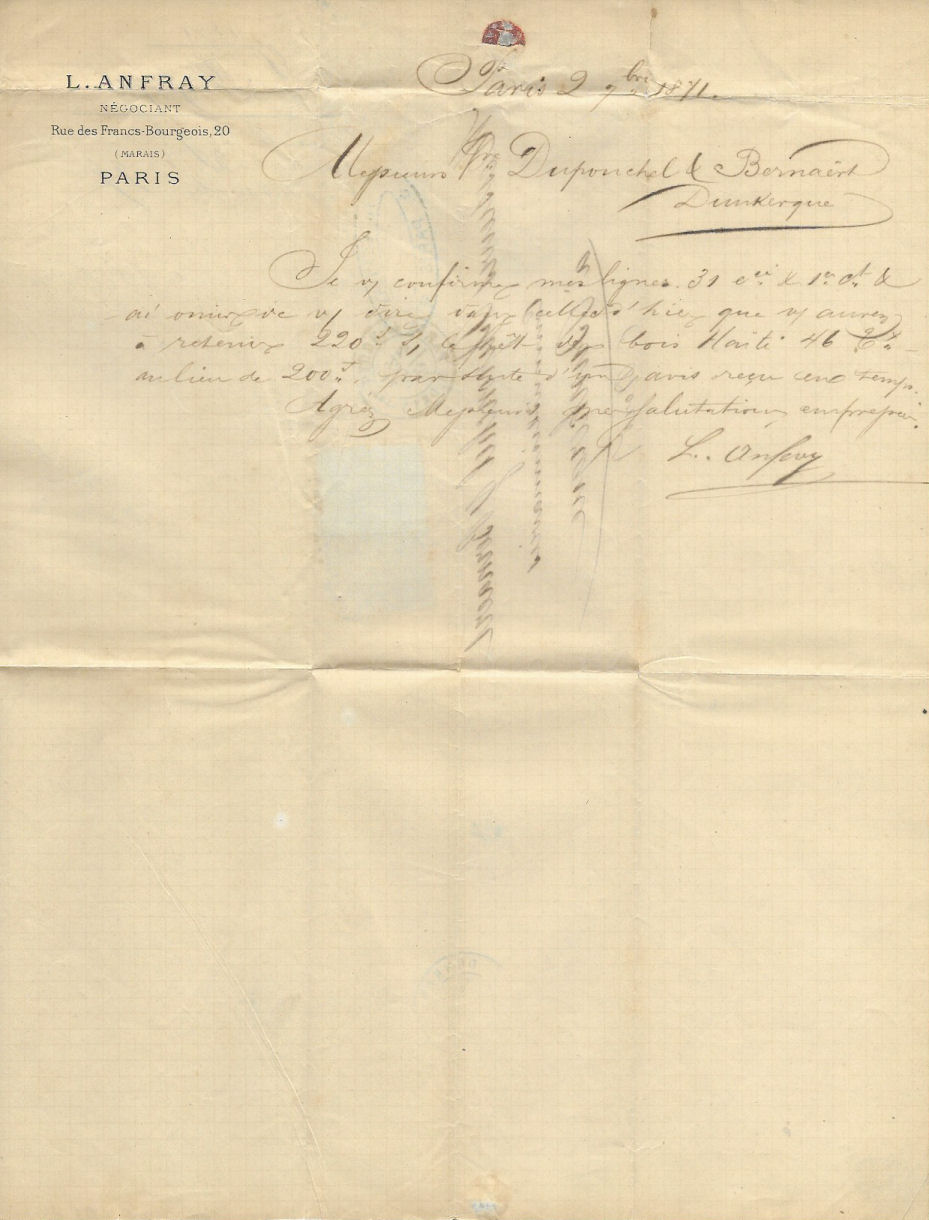 L. ANFRAY
NÉGOCIANT
Rue des Francs-Bourgeois, 20
(MARAIS)
PARIS
Paris 2 7bre 1871.
Messieurs Duponchel & Bernaërt
Dunkerque
Je vs confirme mes lignes 31 & 1er ct &
ai omis de vs dire dans celle d'hier que vs aurez
à retenir 220f s/ le frêt des bois Haïti 46
au lieu de 200f, par suite d'un avis reçu en temps.
Agréez Messieurs mes salutations empressées.
L. Anfray